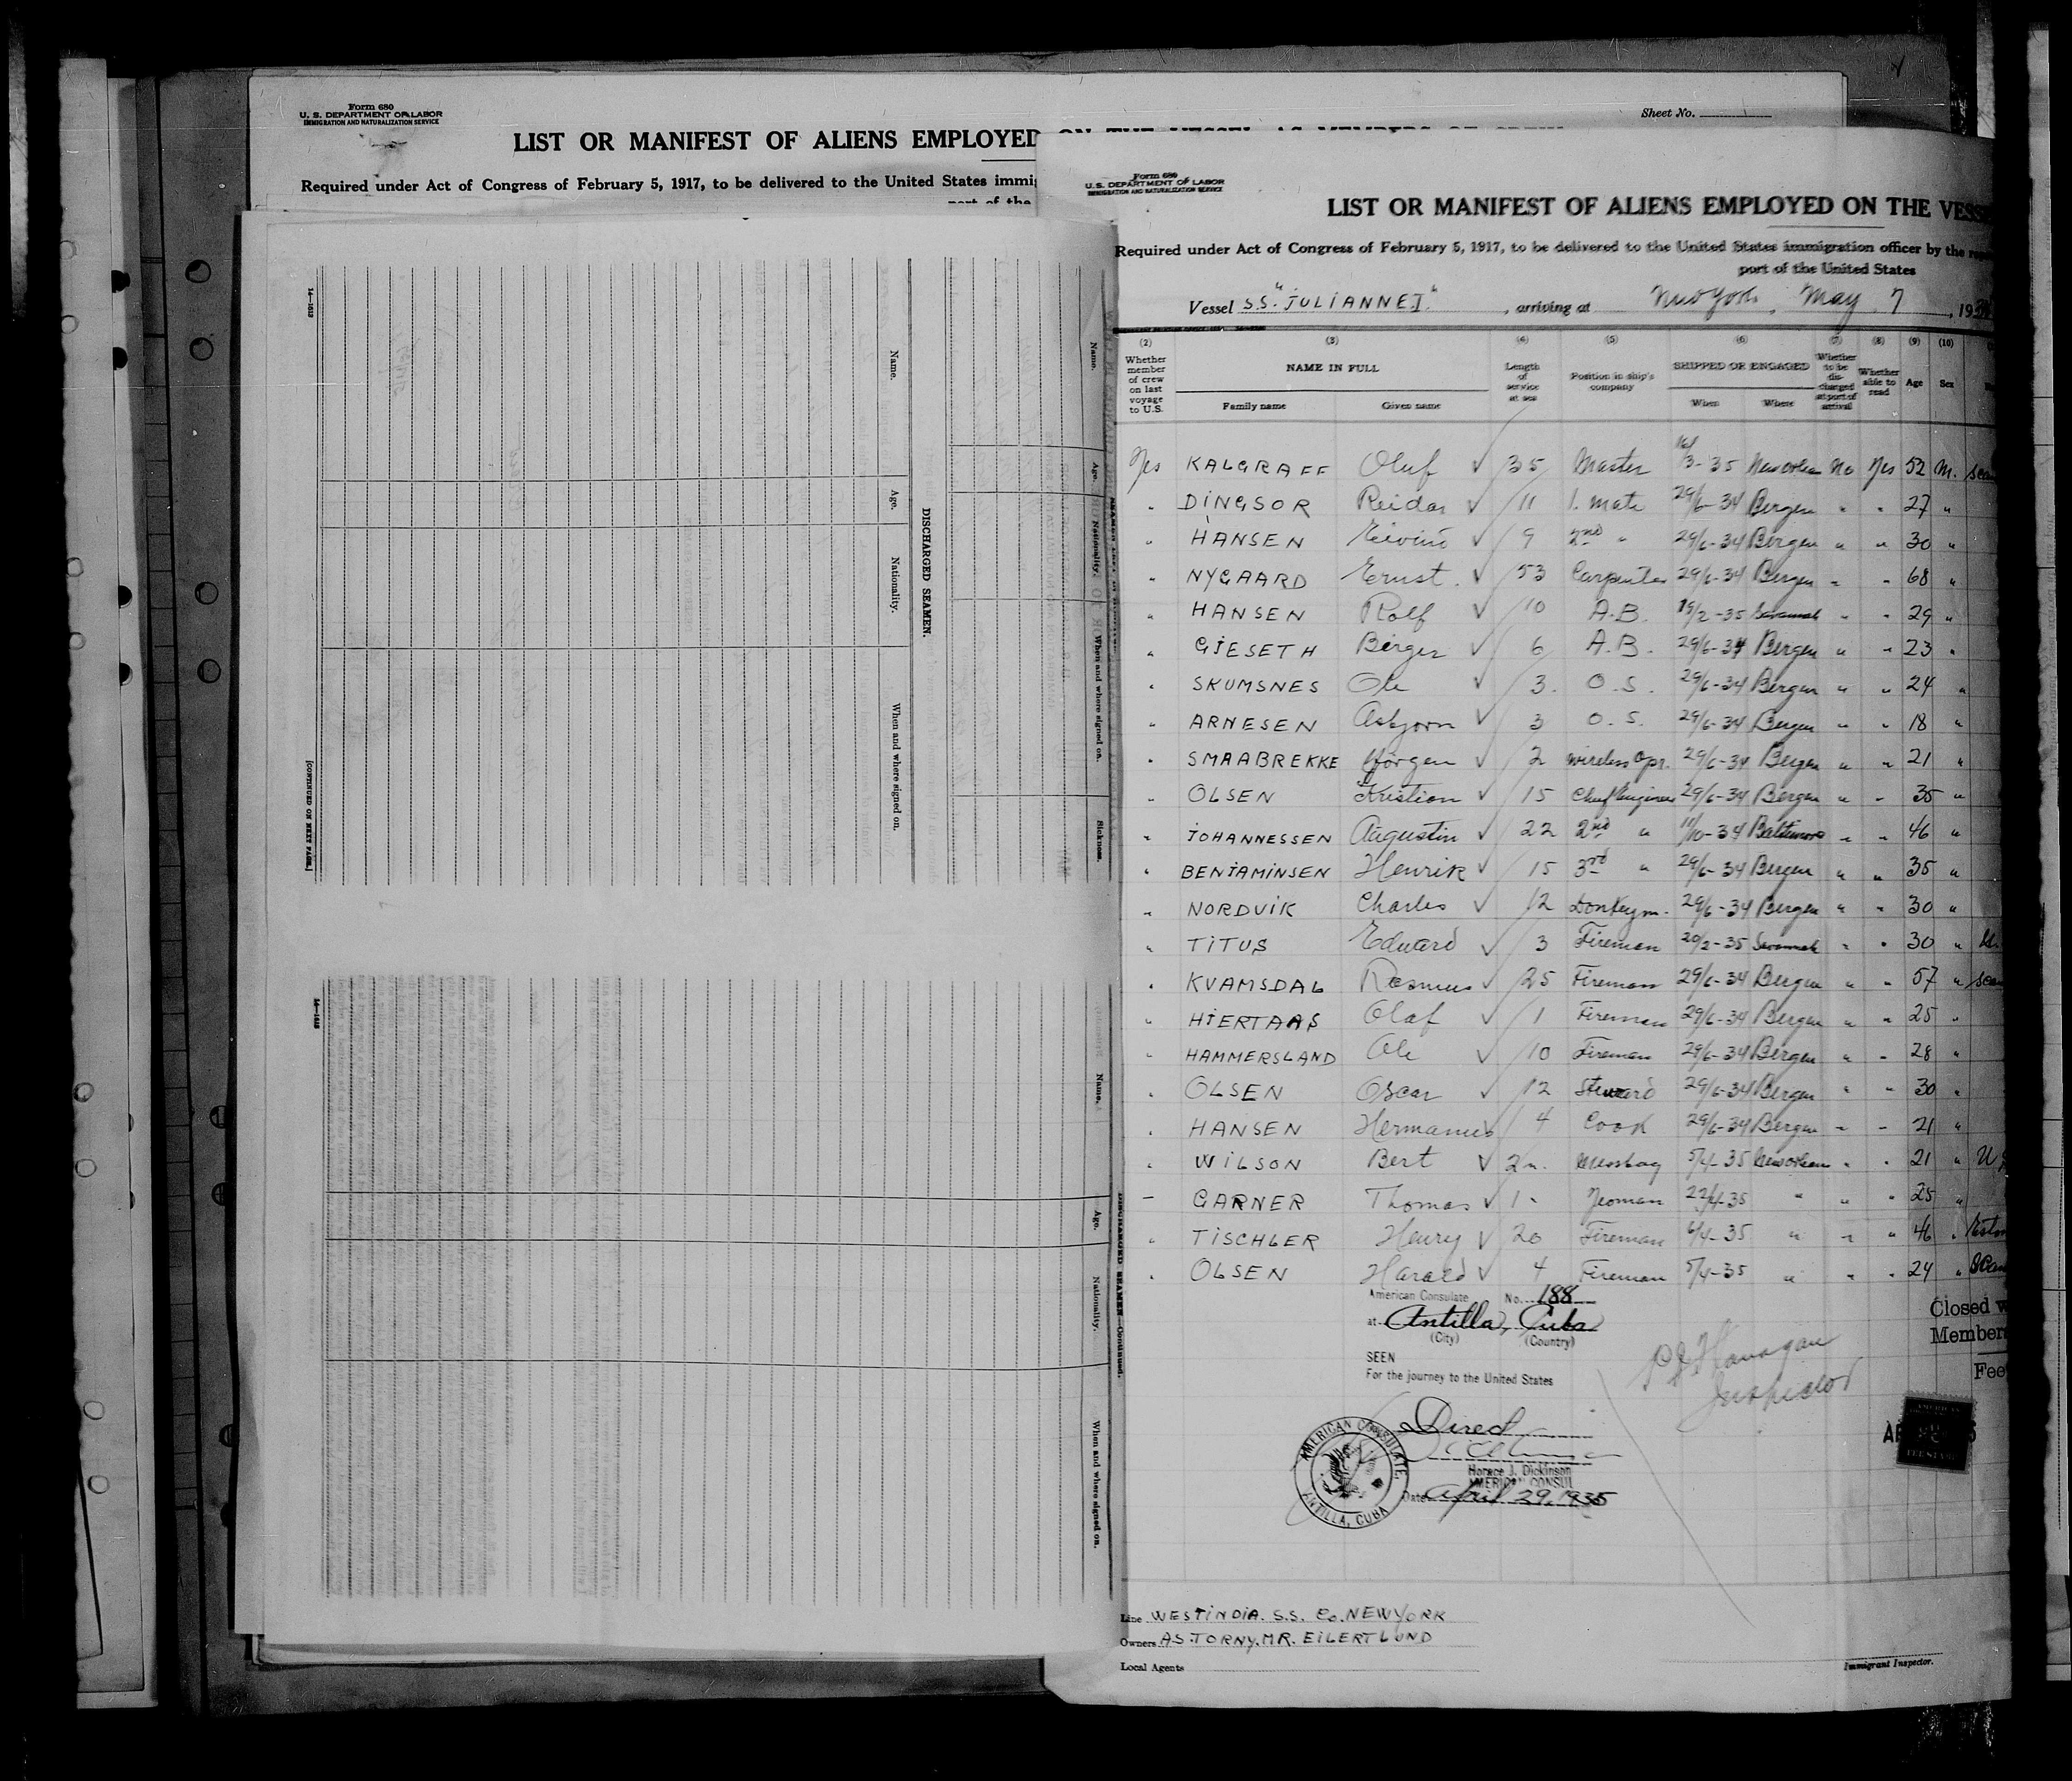 Form 680
U. S. DEPARTMENT OF LABOR
IMMIGRATION AND NATURALIZATION SERVICE
Sheet No.
LIST OR MANIFEST OF ALIENS EMPLOYED
Required under Act of Congress of February 5, 1917, to be delivered to the United States immig
part of the
14—1613
Name.
Age.
Nationality.
When and where signed on.
[CONTINUED ON NEXT PAGE.]
DISCHARGED SEAMEN.
Name.
Age.
Nationality.
When and where signed on.
Sickness.
Name.
Age.
Nationality.
When and where signed on.
DISCHARGED SEAMEN—Continued.
Form 680
U. S. DEPARTMENT OF LABOR
IMMIGRATION AND NATURALIZATION SERVICE
LIST OR MANIFEST OF ALIENS EMPLOYED ON THE VESSE
Required under Act of Congress of February 5, 1917, to be delivered to the United States immigration officer by the
port of the United States
Vessel S.S. "JULIANNE I" , arriving at New York, May 7, 193
(2) (3) (4) (5) (6) (7) (8) (9) (10)
Whether member of crew on last voyage to U.S.
NAME IN FULL
Family name Given name
Length of service at sea
Position in ship's company
SHIPPED OR ENGAGED
When Where
Whether to be discharged at port of arrival
Whether able to read
Age
Sex
Yes KALGRAFF Oluf √ 35 Master 3-35 New Orlean No Yes 52 M.
" DINGSOR Reidar √ 11 1. mate 29/6-34 Bergen " " 27 "
" HANSEN Eivind √ 9 2nd " 29/6-34 Bergen " " 30 "
" NYGAARD Ernst. √ 53 Carpenter 29/6-34 Bergen " " 68 "
" HANSEN Rolf √ 10 A.B. 19/2-35 Savannah " " 29 "
" GJESETH Birger √ 6 A.B. 29/6-34 Bergen " " 23 "
" SKUMSNES Ole √ 3. O.S. 29/6-34 Bergen " " 24 "
" ARNESEN Asbjorn √ 3 O.S. 29/6-34 Bergen " " 18 "
" SMAABREKKE Jörgen √ 2 wireless Opr. 29/6-34 Bergen " " 21 "
" OLSEN Kristian √ 15 Chief Engineer 29/6-34 Bergen " " 35 "
" JOHANNESSEN Augustin √ 22 2nd " 11/10-34 Baltimore " " 46 "
" BENJAMINSEN Henrik √ 15 3rd " 29/6-34 Bergen " " 35 "
" NORDVIK Charles √ 12 Donkeym. 29/6-34 Bergen " " 30 "
" TITUS Edward √ 3 Fireman 20/2-35 Savannah " " 30 "
" KVAMSDAL Rasmus √ 25 Fireman 29/6-34 Bergen " " 57 "
" HJERTAAS Olaf √ 1 Fireman 29/6-34 Bergen " " 25 "
" HAMMERSLAND Ole √ 10 Fireman 29/6-34 Bergen " " 28 "
" OLSEN Oscar √ 12 Steward 29/6-34 Bergen " " 30 "
" HANSEN Hermanus √ 4 Cook 29/6-34 Bergen " " 21 "
" WILSON Bert √ Messboy 5/4-35 New Orleans " " 21 "
– GARNER Thomas √ 1 Yeoman 22/4-35 " " " 25 "
" TISCHLER Henry √ 20 Fireman 6/4-35 " " " 46 "
" OLSEN Harald √ 4 Fireman 5/4-35 " " " 24 "
American Consulate No. 188
at Antilla, Cuba
(City) (Country)
SEEN
For the journey to the United States
Direct
Horace J. Dickinson
AMERICAN CONSUL
Date April 29, 1935
AMERICAN CONSULATE, ANTILLA, CUBA
Closed
Member
Fee
Flanagan
Inspector
Line WESTINDIA. S.S. Co. NEW YORK
Owners AS. TORNY. MR. EILERT LUND
Local Agents
Immigrant Inspector.